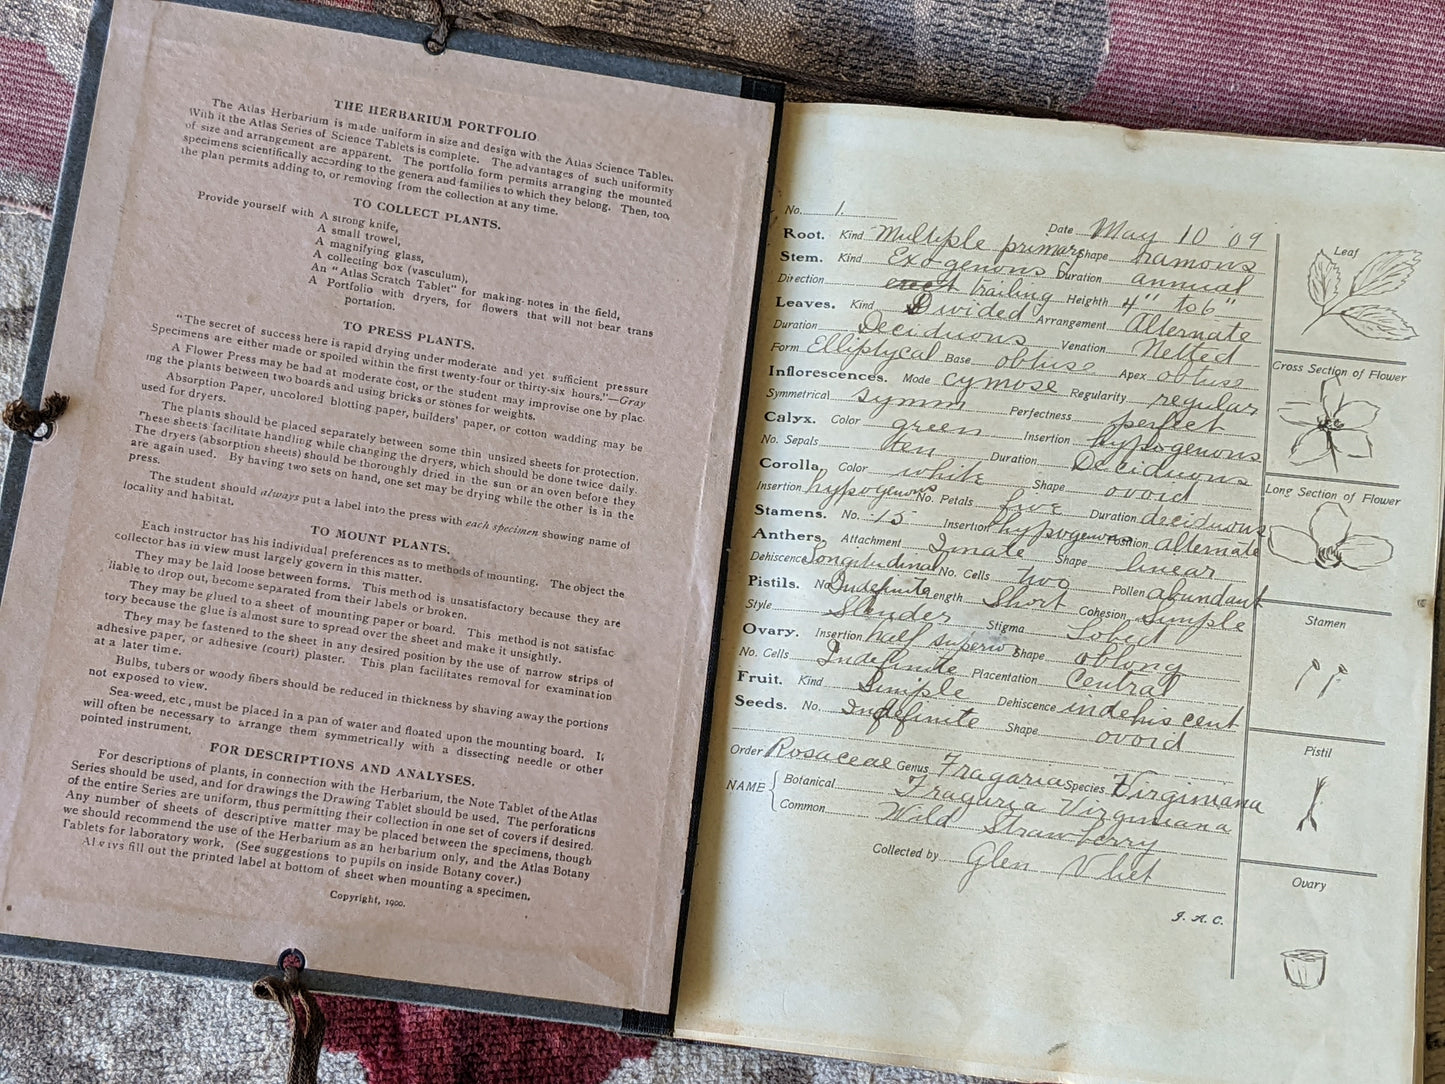 THE HERBARIUM PORTFOLIO
The Atlas Herbarium is made uniform in size and design with the Atlas Science Tablet.
With it the Atlas Series of Science Tablets is complete. The advantages of such uniformity
of size and arrangement are apparent. The portfolio form permits arranging the mounted
specimens scientifically according to the genera and families to which they belong. Then, too,
the plan permits adding to, or removing from the collection at any time.
TO COLLECT PLANTS.
Provide yourself with A strong knife,
A small trowel,
A magnifying glass,
A collecting box (vasculum),
An "Atlas Scratch Tablet" for making notes in the field,
A Portfolio with dryers, for flowers that will not bear trans
portation.
TO PRESS PLANTS.
"The secret of success here is rapid drying under moderate and yet sufficient pressure
Specimens are either made or spoiled within the first twenty-four or thirty-six hours."—Gray
A Flower Press may be had at moderate cost, or the student may improvise one by plac-
ing the plants between two boards and using bricks or stones for weights.
Absorption Paper, uncolored blotting paper, builders' paper, or cotton wadding may be
used for dryers.
The plants should be placed separately between some thin unsized sheets for protection.
These sheets facilitate handling while changing the dryers, which should be done twice daily.
The dryers (absorption sheets) should be thoroughly dried in the sun or an oven before they
are again used. By having two sets on hand, one set may be drying while the other is in the
press.
The student should always put a label into the press with each specimen showing name of
locality and habitat.
TO MOUNT PLANTS.
Each instructor has his individual preferences as to methods of mounting. The object the
collector has in view must largely govern in this matter.
They may be laid loose between forms. This method is unsatisfactory because they are
liable to drop out, become separated from their labels or broken.
They may be glued to a sheet of mounting paper or board. This method is not satisfac
tory because the glue is almost sure to spread over the sheet and make it unsightly.
They may be fastened to the sheet in any desired position by the use of narrow strips of
adhesive paper, or adhesive (court) plaster. This plan facilitates removal for examination
at a later time.
Bulbs, tubers or woody fibers should be reduced in thickness by shaving away the portions
not exposed to view.
Sea-weed, etc., must be placed in a pan of water and floated upon the mounting board. It
will often be necessary to arrange them symmetrically with a dissecting needle or other
pointed instrument.
FOR DESCRIPTIONS AND ANALYSES.
For descriptions of plants, in connection with the Herbarium, the Note Tablet of the Atlas
Series should be used, and for drawings the Drawing Tablet should be used. The perforations
of the entire Series are uniform, thus permitting their collection in one set of covers if desired.
Any number of sheets of descriptive matter may be placed between the specimens, though
we should recommend the use of the Herbarium as an herbarium only, and the Atlas Botany
Tablets for laboratory work. (See suggestions to pupils on inside Botany cover.)
Always fill out the printed label at bottom of sheet when mounting a specimen.
Copyright, 1900.
No. 1.
Date May 10 '09
Root. Kind Multiple primary Shape ramons
Stem. Kind Exogenous Duration annual
Direction erect trailing Heighth 4" to 6"
Leaves. Kind Divided Arrangement Alternate
Duration Deciduous Venation Netted
Form Elliptycal Base obtuse Apex obtuse
Inflorescences. Mode cymose Regularity regular
Symmetrical symm Perfectness perfect
Calyx. Color green Insertion hypogenous
No. Sepals ten Duration Deciduous
Corolla, Color white Shape ovoid
Insertion hypogenous No. Petals five Duration deciduous
Stamens. No. 15 Insertion hypogenous Position alternate
Anthers, Attachment Innate Shape linear
Dehiscence Longitudinal No. Cells two Pollen abundant
Pistils. No. Indefinite Length Short Cohesion Simple
Style Slender Stigma Lobed
Ovary. Insertion half superior Shape oblong
No. Cells Indefinite Placentation Central
Fruit. Kind Simple Dehiscence indehiscent
Seeds. No. Indefinite Shape ovoid
Order Rosaceae Genus Fragaria Species Virginiana
NAME { Botanical Fraguria Virginiana
Common Wild Strawberry
Collected by Glen Vliet
J. A. C.
Leaf
Cross Section of Flower
Long Section of Flower
Stamen
Pistil
Ovary